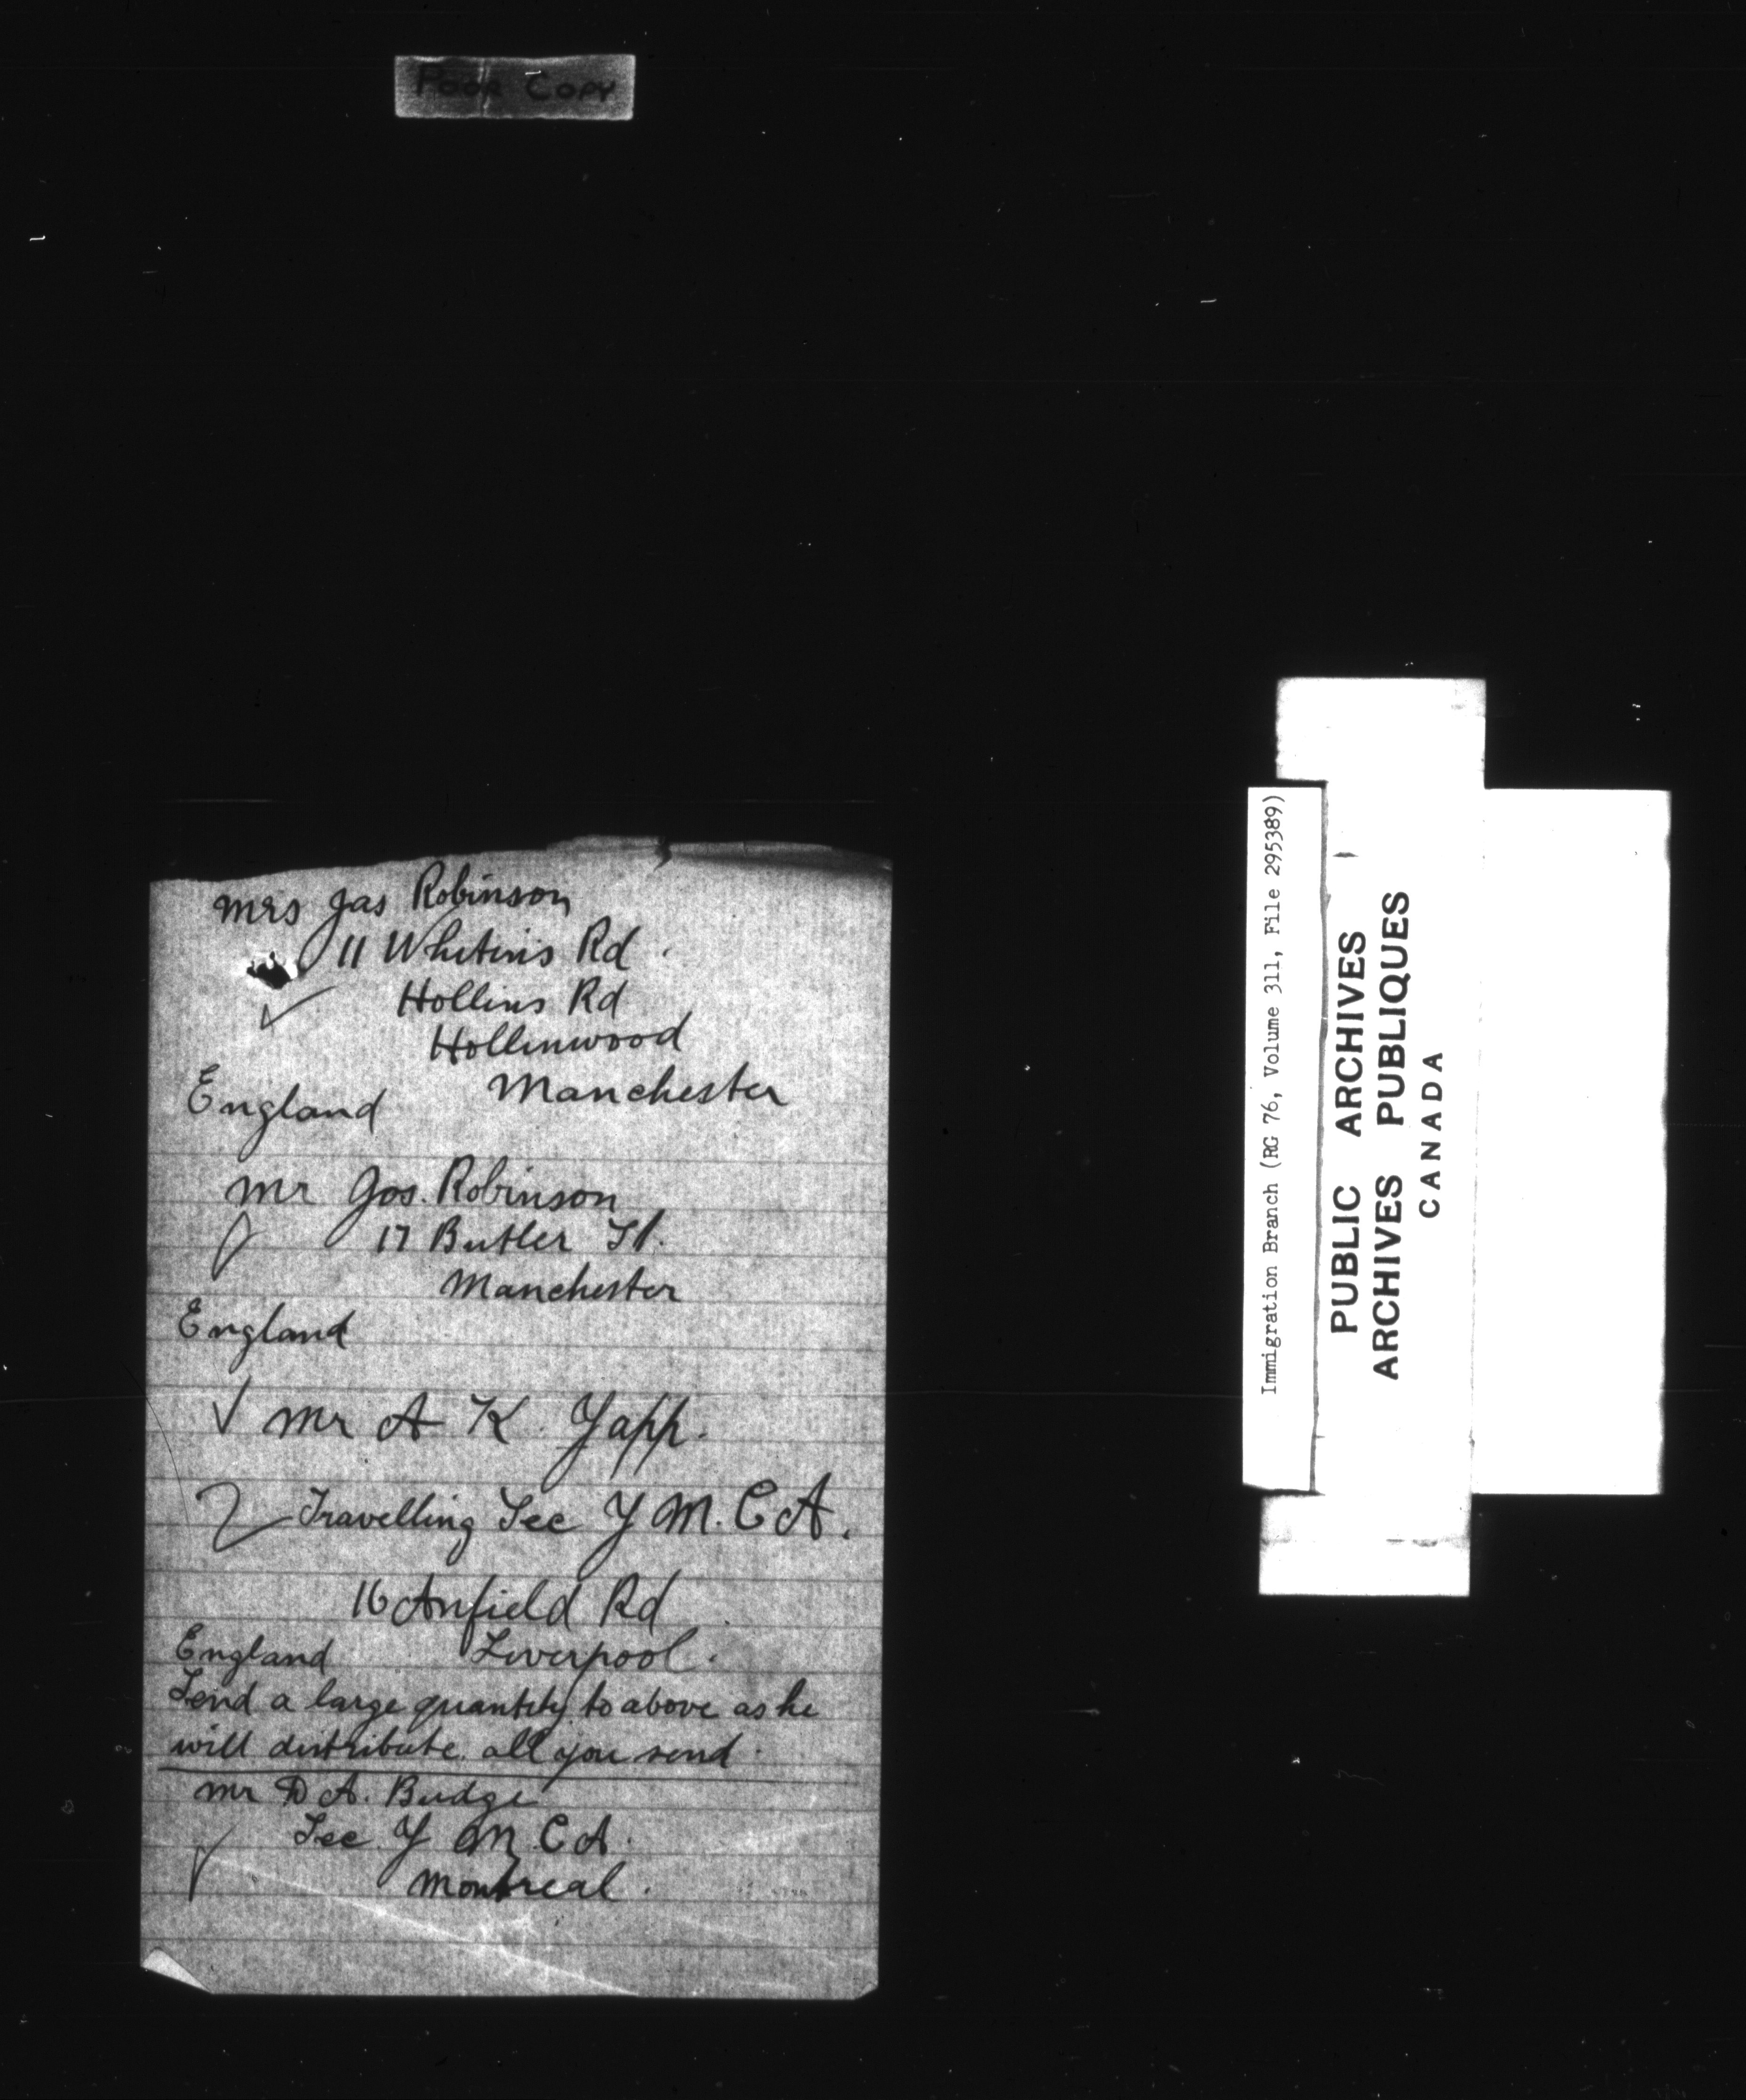 POOR COPY
Mrs Jas Robinson
11 Whitins Rd
Hollins Rd
Hollinwood
Manchester
England
Mr Jos. Robinson
17 Butler St.
Manchester
England
Mr A K Yapp.
Travelling Sec Y M. C A.
16 Anfield Rd
Liverpool.
England
Send a large quantity to above as he
will distribute all you send.
Mr D A. Budge
Sec. Y M. C A.
Montreal.
Immigration Branch (RG 76, Volume 311, File 295389)
PUBLIC ARCHIVES
ARCHIVES PUBLIQUES
CANADA